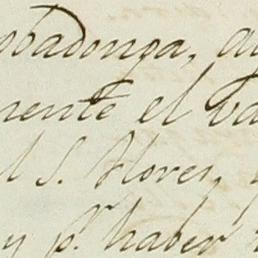 obadonga, au
mente el va
l S. Flores,
y p.r haber